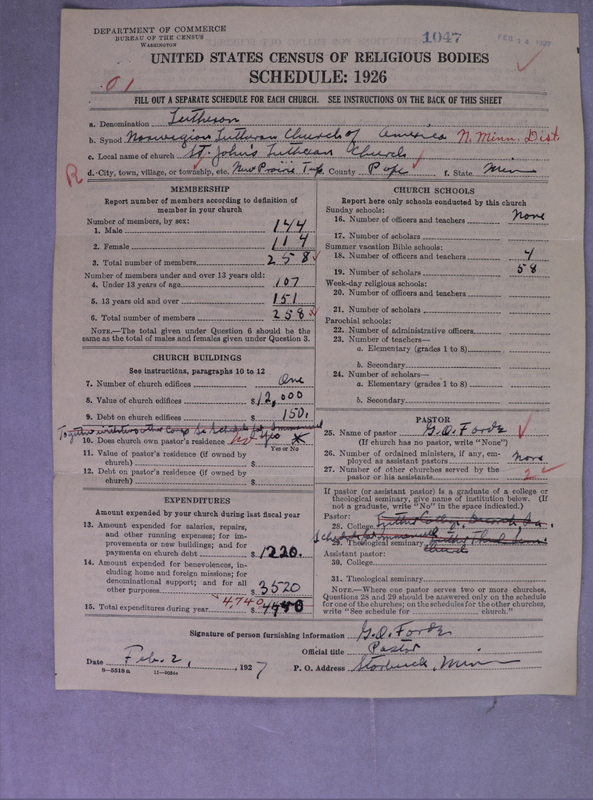 DEPARTMENT OF COMMERCE
BUREAU OF THE CENSUS
WASHINGTON
1047
UNITED STATES CENSUS OF RELIGIOUS BODIES
SCHEDULE: 1926
01
FILL OUT A SEPARATE SCHEDULE FOR EACH CHURCH. SEE INSTRUCTIONS ON THE BACK OF THIS SHEET
a. Denomination Lutheran
b. Synod Norwegian Lutheran Church of America N. Minn. Dist.
c. Local name of church St. John's Lutheran Church
R d. City, town, village, or township, etc. New Prairie Twp. County Pope f. State Minn
MEMBERSHIP
Report number of members according to definition of member in your church
Number of members, by sex:
1. Male 144
2. Female 114
3. Total number of members 258
Number of members under and over 13 years old:
4. Under 13 years of age 107
5. 13 years old and over 151
6. Total number of members 258
NOTE.—The total given under Question 6 should be the same as the total of males and females given under Question 3.
CHURCH BUILDINGS
See instructions, paragraphs 10 to 12
7. Number of church edifices One
8. Value of church edifices $12,000
9. Debt on church edifices $150.
10. Does church own pastor's residence no Yes
Yes or No
11. Value of pastor's residence (if owned by church) $
12. Debt on pastor's residence (if owned by church) $
EXPENDITURES
Amount expended by your church during last fiscal year
13. Amount expended for salaries, repairs, and other running expense; for improvements or new buildings; and for payments on church debt $1220.
14. Amount expended for benevolences, including home and foreign missions; for denominational support; and for all other purposes $3520
15. Total expenditures during year 4,740 $
CHURCH SCHOOLS
Report here only schools conducted by this church
Sunday schools:
16. Number of officers and teachers None
17. Number of scholars
Summer vacation Bible schools:
18. Number of officers and teachers 4
19. Number of scholars 58
Week-day religious schools:
20. Number of officers and teachers
21. Number of scholars
Parochial schools:
22. Number of administrative officers
23. Number of teachers—
a. Elementary (grades 1 to 8)
b. Secondary
24. Number of scholars—
a. Elementary (grades 1 to 8)
b. Secondary
PASTOR
25. Name of pastor G.O. Forde
(If church has no pastor, write "None")
26. Number of ordained ministers, if any, employed as assistant pastors None
27. Number of other churches served by the pastor or his assistants 2
If pastor (or assistant pastor) is a graduate of a college or theological seminary, give name of institution below. (If not a graduate, write "No" in the space indicated.)
Pastor:
28. College
29. Theological seminary
Assistant pastor:
30. College
31. Theological seminary
NOTE.—Where one pastor serves two or more churches, Questions 28 and 29 should be answered only on the schedule for one of the churches; on the schedules for the other churches, write "See schedule for church."
Signature of person furnishing information G.O. Forde
Official title Pastor
Date Feb. 2, , 1927 P. O. Address Starbuck, Minn
8—5518a